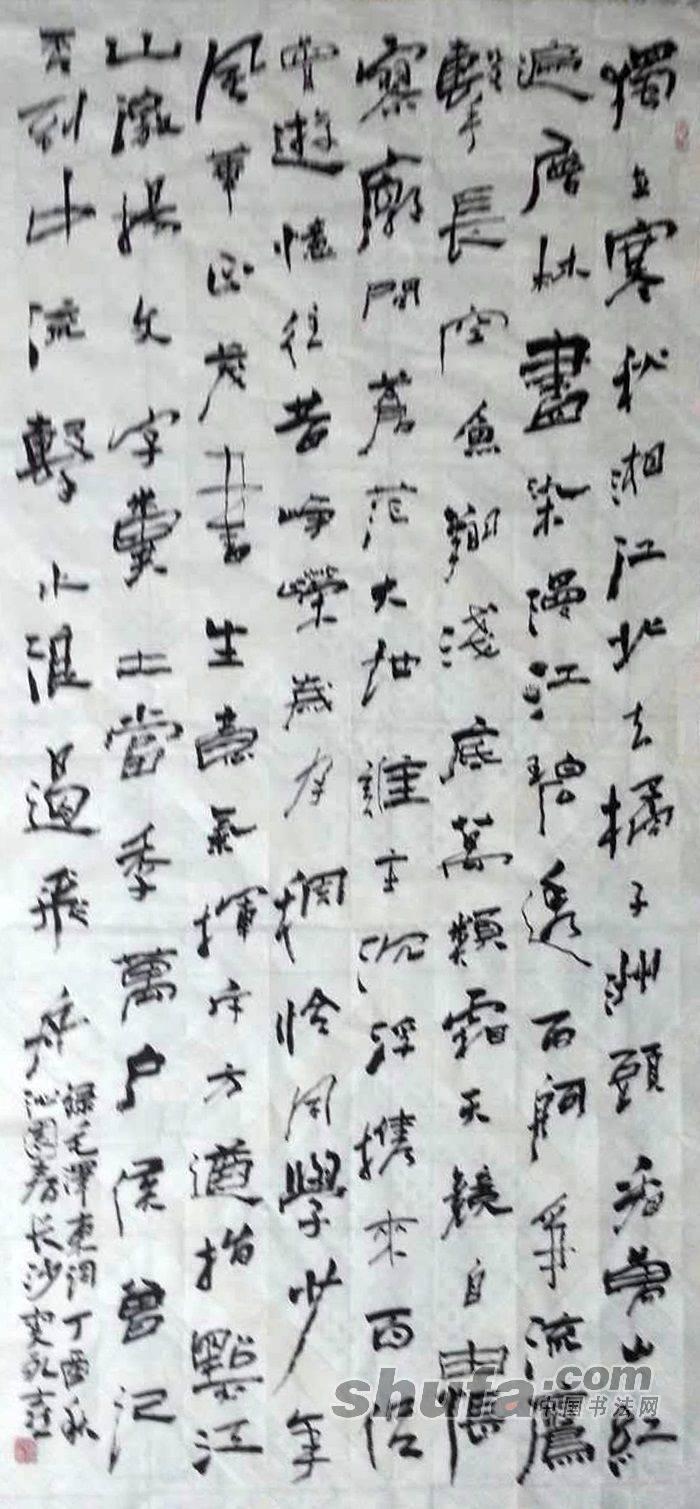 獨立寒秋湘江北去橘子洲頭看萬山紅
遍層林盡染漫江碧透百舸爭流鷹
擊長空魚翔淺底萬類霜天競自由悵
寥廓問蒼茫大地誰主沉浮攜來百侣
曾遊憶往昔崢嶸歲月稠恰同學少年
風華正茂書生意氣揮斥方遒指點江
山激揚文字糞土當年萬户侯曾记
否到中流擊水浪遏飛舟
録毛澤東词丁酉秋
沁園春长沙
shufa.com
中国书法网